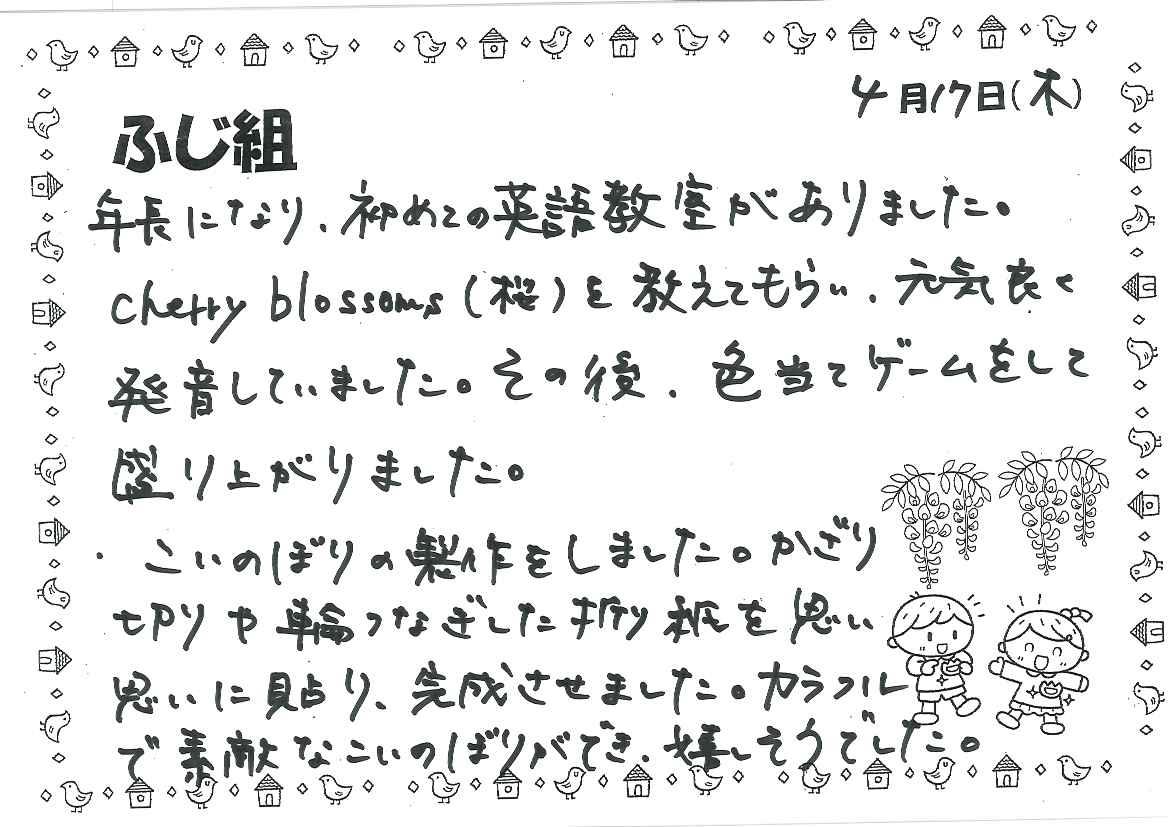 4月17日(木)
ふじ組
年長になり、初めての英語教室がありました。
cherry blossoms(桜)を教えてもらい、元気良く
発音していました。その後、色当てゲームをして
盛り上がりました。
・こいのぼりの製作をしました。かざり
切りや輪つなぎした折り紙を思い
思いに貼り、完成させました。カラフル
で素敵なこいのぼりができ、嬉しそうでした。